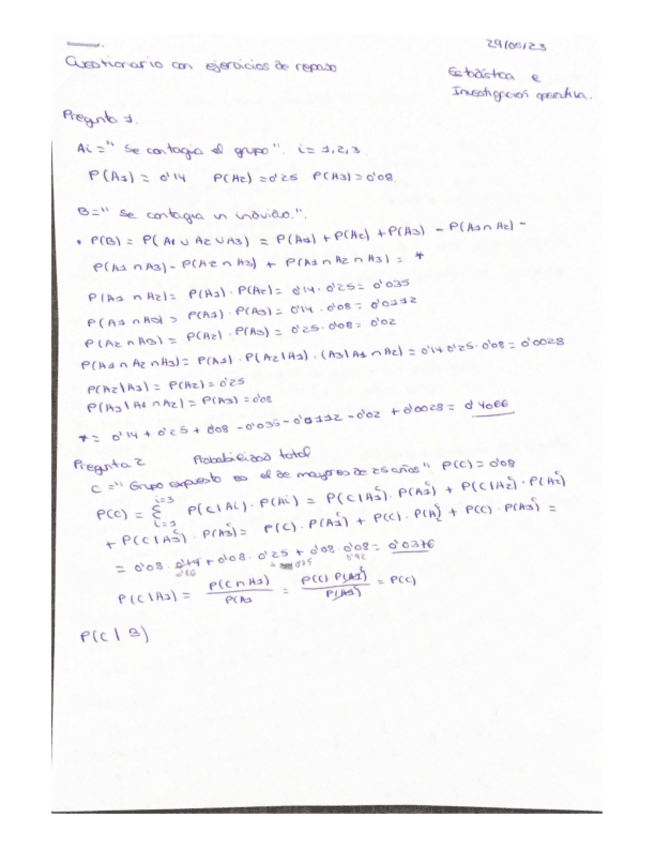 29/05/23
Cuestionario con ejercicios de repaso
Estadística e
Investigación operativa.
Pregunta 1.
Ai = " Se contagia el grupo". i = 1,2,3
P(A1) = 0'14 P(A2) = 0'25 P(A3) = 0'08
B = " Se contagia un individuo.".
• P(B) = P( A1 ∪ A2 ∪ A3) = P(A1) + P(A2) + P(A3) - P(A1 ∩ A2) -
P(A1 ∩ A3) - P(A2 ∩ A3) + P(A1 ∩ A2 ∩ A3) = *
P(A1 ∩ A2) = P(A1) · P(A2) = 0'14 · 0'25 = 0'035
P(A1 ∩ A3) = P(A1) · P(A3) = 0'14 · 0'08 = 0'0112
P(A2 ∩ A3) = P(A2) · P(A3) = 0'25 · 0'08 = 0'02
P(A1 ∩ A2 ∩ A3) = P(A1) · P(A2|A1) · (A3|A1 ∩ A2) = 0'14 0'25 · 0'08 = 0'0028
P(A2|A1) = P(A2) = 0'25
P(A3|A1 ∩ A2) = P(A3) = 0'08
* = 0'14 + 0'25 + 0'08 - 0'035 - 0'0112 - 0'02 + 0'0028 = 0'4066
Pregunta 2 Probabilidad total
C = " Grupo expuesto es el de mayores de 25 años" P(C) = 0'08
P(C) = Σ i=1 i=3 P(C|Ai) · P(Ai) = P(C|A1ᶜ) · P(A1ᶜ) + P(C|A2ᶜ) · P(A2ᶜ)
+ P(C|A3ᶜ) · P(A3ᶜ) = P(C) · P(A1ᶜ) + P(C) · P(A2ᶜ) + P(C) · P(A3ᶜ) =
= 0'08 · 0'14 + 0'08 · 0'25 + 0'08 · 0'08 = 0'0376
P(C|A1) = P(C ∩ A1) / P(A1 = P(C) P(A1ᶜ) / P(A1ᶜ) = P(C)
P(C | B)